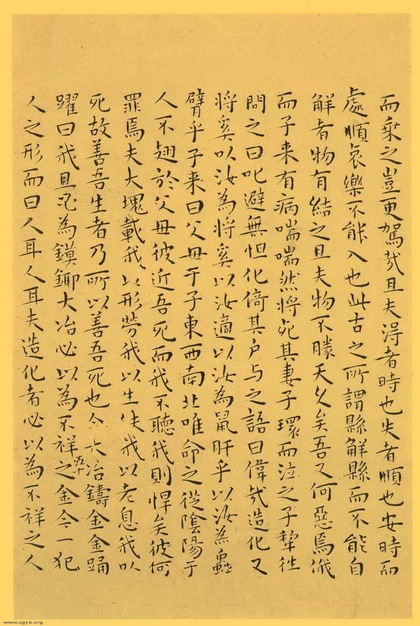 而乘之豈更駕哉且夫得者時也失者順也安時而
處順哀樂不能入也此古之所謂縣解縣而不能自
解者物有結之且夫物不勝天久矣吾又何惡焉俄
而子来有病喘喘然將死其妻子環而泣之子犂往
問之曰叱避無怛化倚其户与之語曰偉哉造化又
將奚以汝為將奚以汝適以汝為鼠肝乎以汝為蟲
臂乎子来曰父母于子東西南北唯命之從陰陽于
人不翅於父母彼近吾死而我不聽我則悍矣彼何
罪焉夫大塊載我以形勞我以生佚我以老息我以
死故善吾生者乃所以善吾死也今大冶鑄金金踊
躍曰我且必為鏌鋣大冶必以為不祥之金今一犯
人之形而曰人耳人耳夫造化者必以為不祥之人
www.zgyk.org